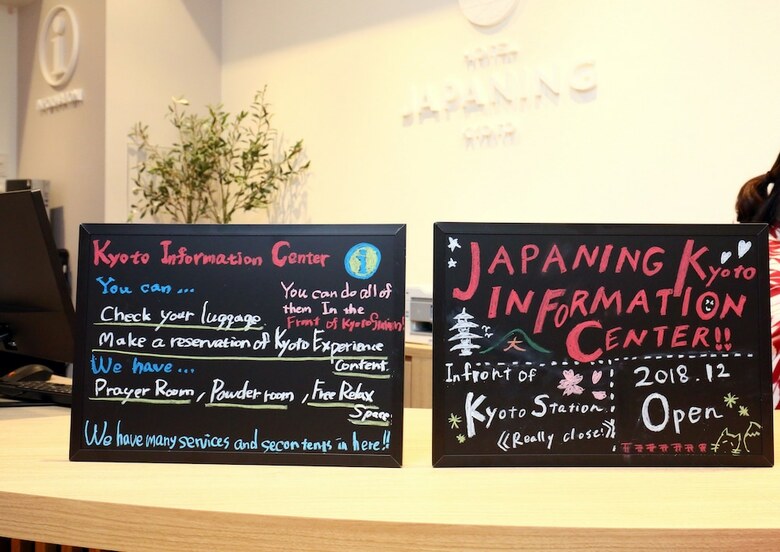 JAPANING
Kyoto Information Center
i
You can ...
You can do all of
them In the
Front of Kyoto Station!
Check your luggage.
Make a reservation of Kyoto Experience
Content.
We have ...
Prayer Room, Powder room, Free Relax
Space.
We have many services and
in here!!
JAPANING Kyoto
INFORMATION
CENTER!!
大
Infront of
Kyoto Station
《Really close!》
2018.12
Open